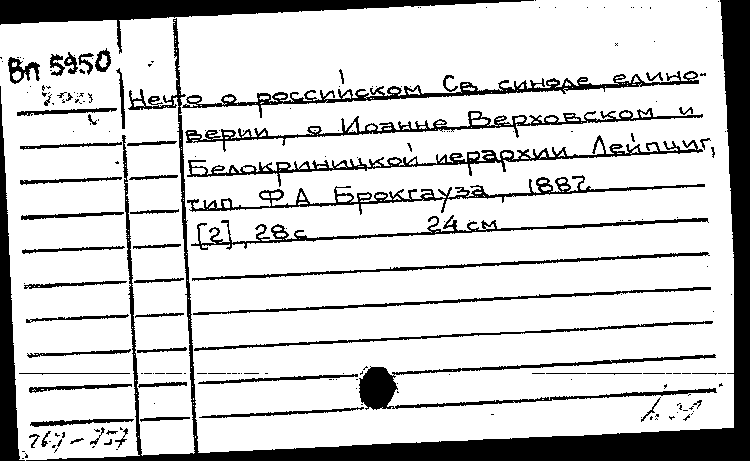 Вп 5950
Нечто о российском Св. синоде, едино-
верии, о Иоанне Верховском и
Белокриницкой иерархии. Лейпциг,
тип. Ф.А. Брокгауза, 1882
[2], 28 с 24 см
267-757